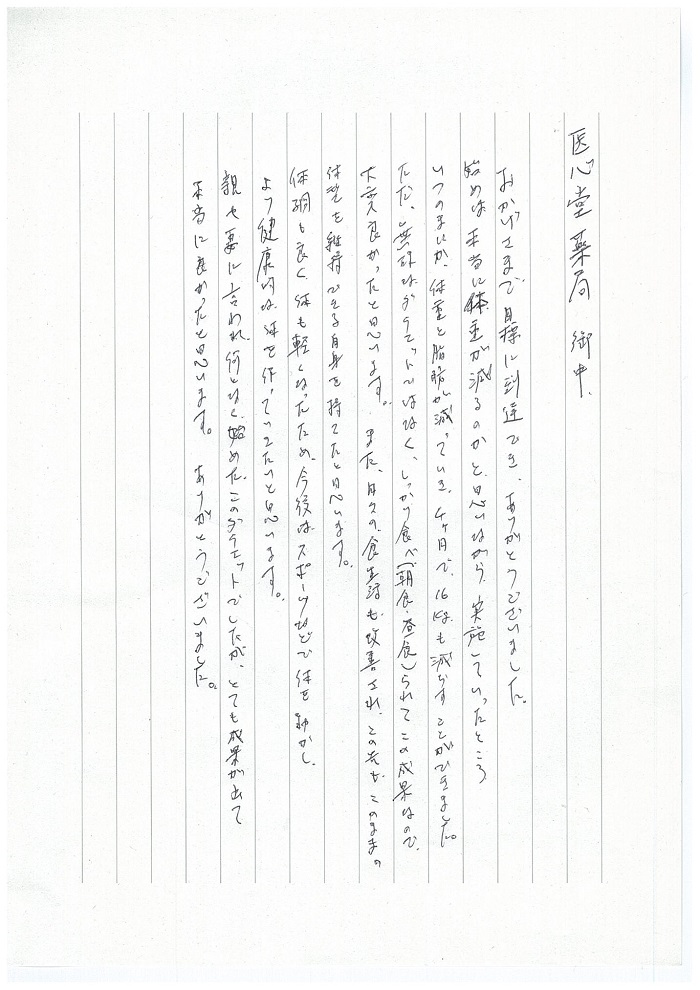 医心堂薬局 御中、
おかげさまで、目標に到達でき、ありがとうございました。
始めは本当に体重が減るのかと思いながら、実施していったところ
いつのまにか、体重と脂肪が減っていき、4ヶ月で、16kgも減らすことができました。
ただ、無理なダイエットではなく、しっかり食べ(朝食・昼食)られてこの成果なので、
大変良かったと思います。 また、日々の、食生活も、改善され、この先も、このままの
体型を維持できる自身を持てたと思います。
体調も良く 体も軽くなったため、今後は、スポーツなどで 体を動かし、
より健康的な、体を作っていきたいと思います。
親や妻に言われ、何となく、始めた、このダイエットでしたが、とても成果が出て
本当に良かったと思います。 ありがとうございました。